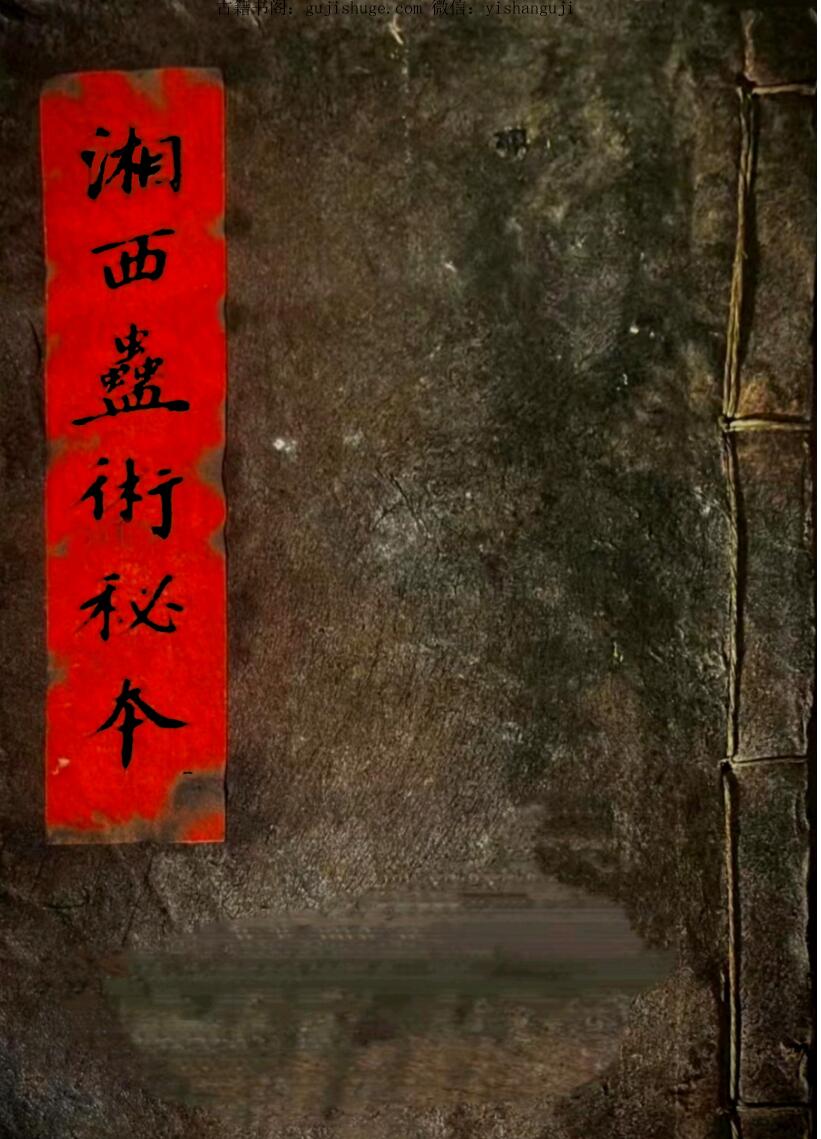 古籍书阁：gujishuge.com 微信：yishanguji
湘西蠱術秘本